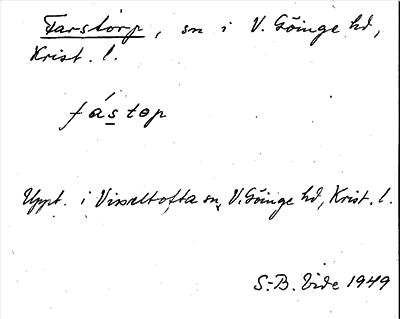 Farstorp, sn i V. Göinge hd,
Krist. l.
fástop
Uppt. i Visseltofta sn, V. Göinge hd, Krist. l.
S.-B. Vide 1949